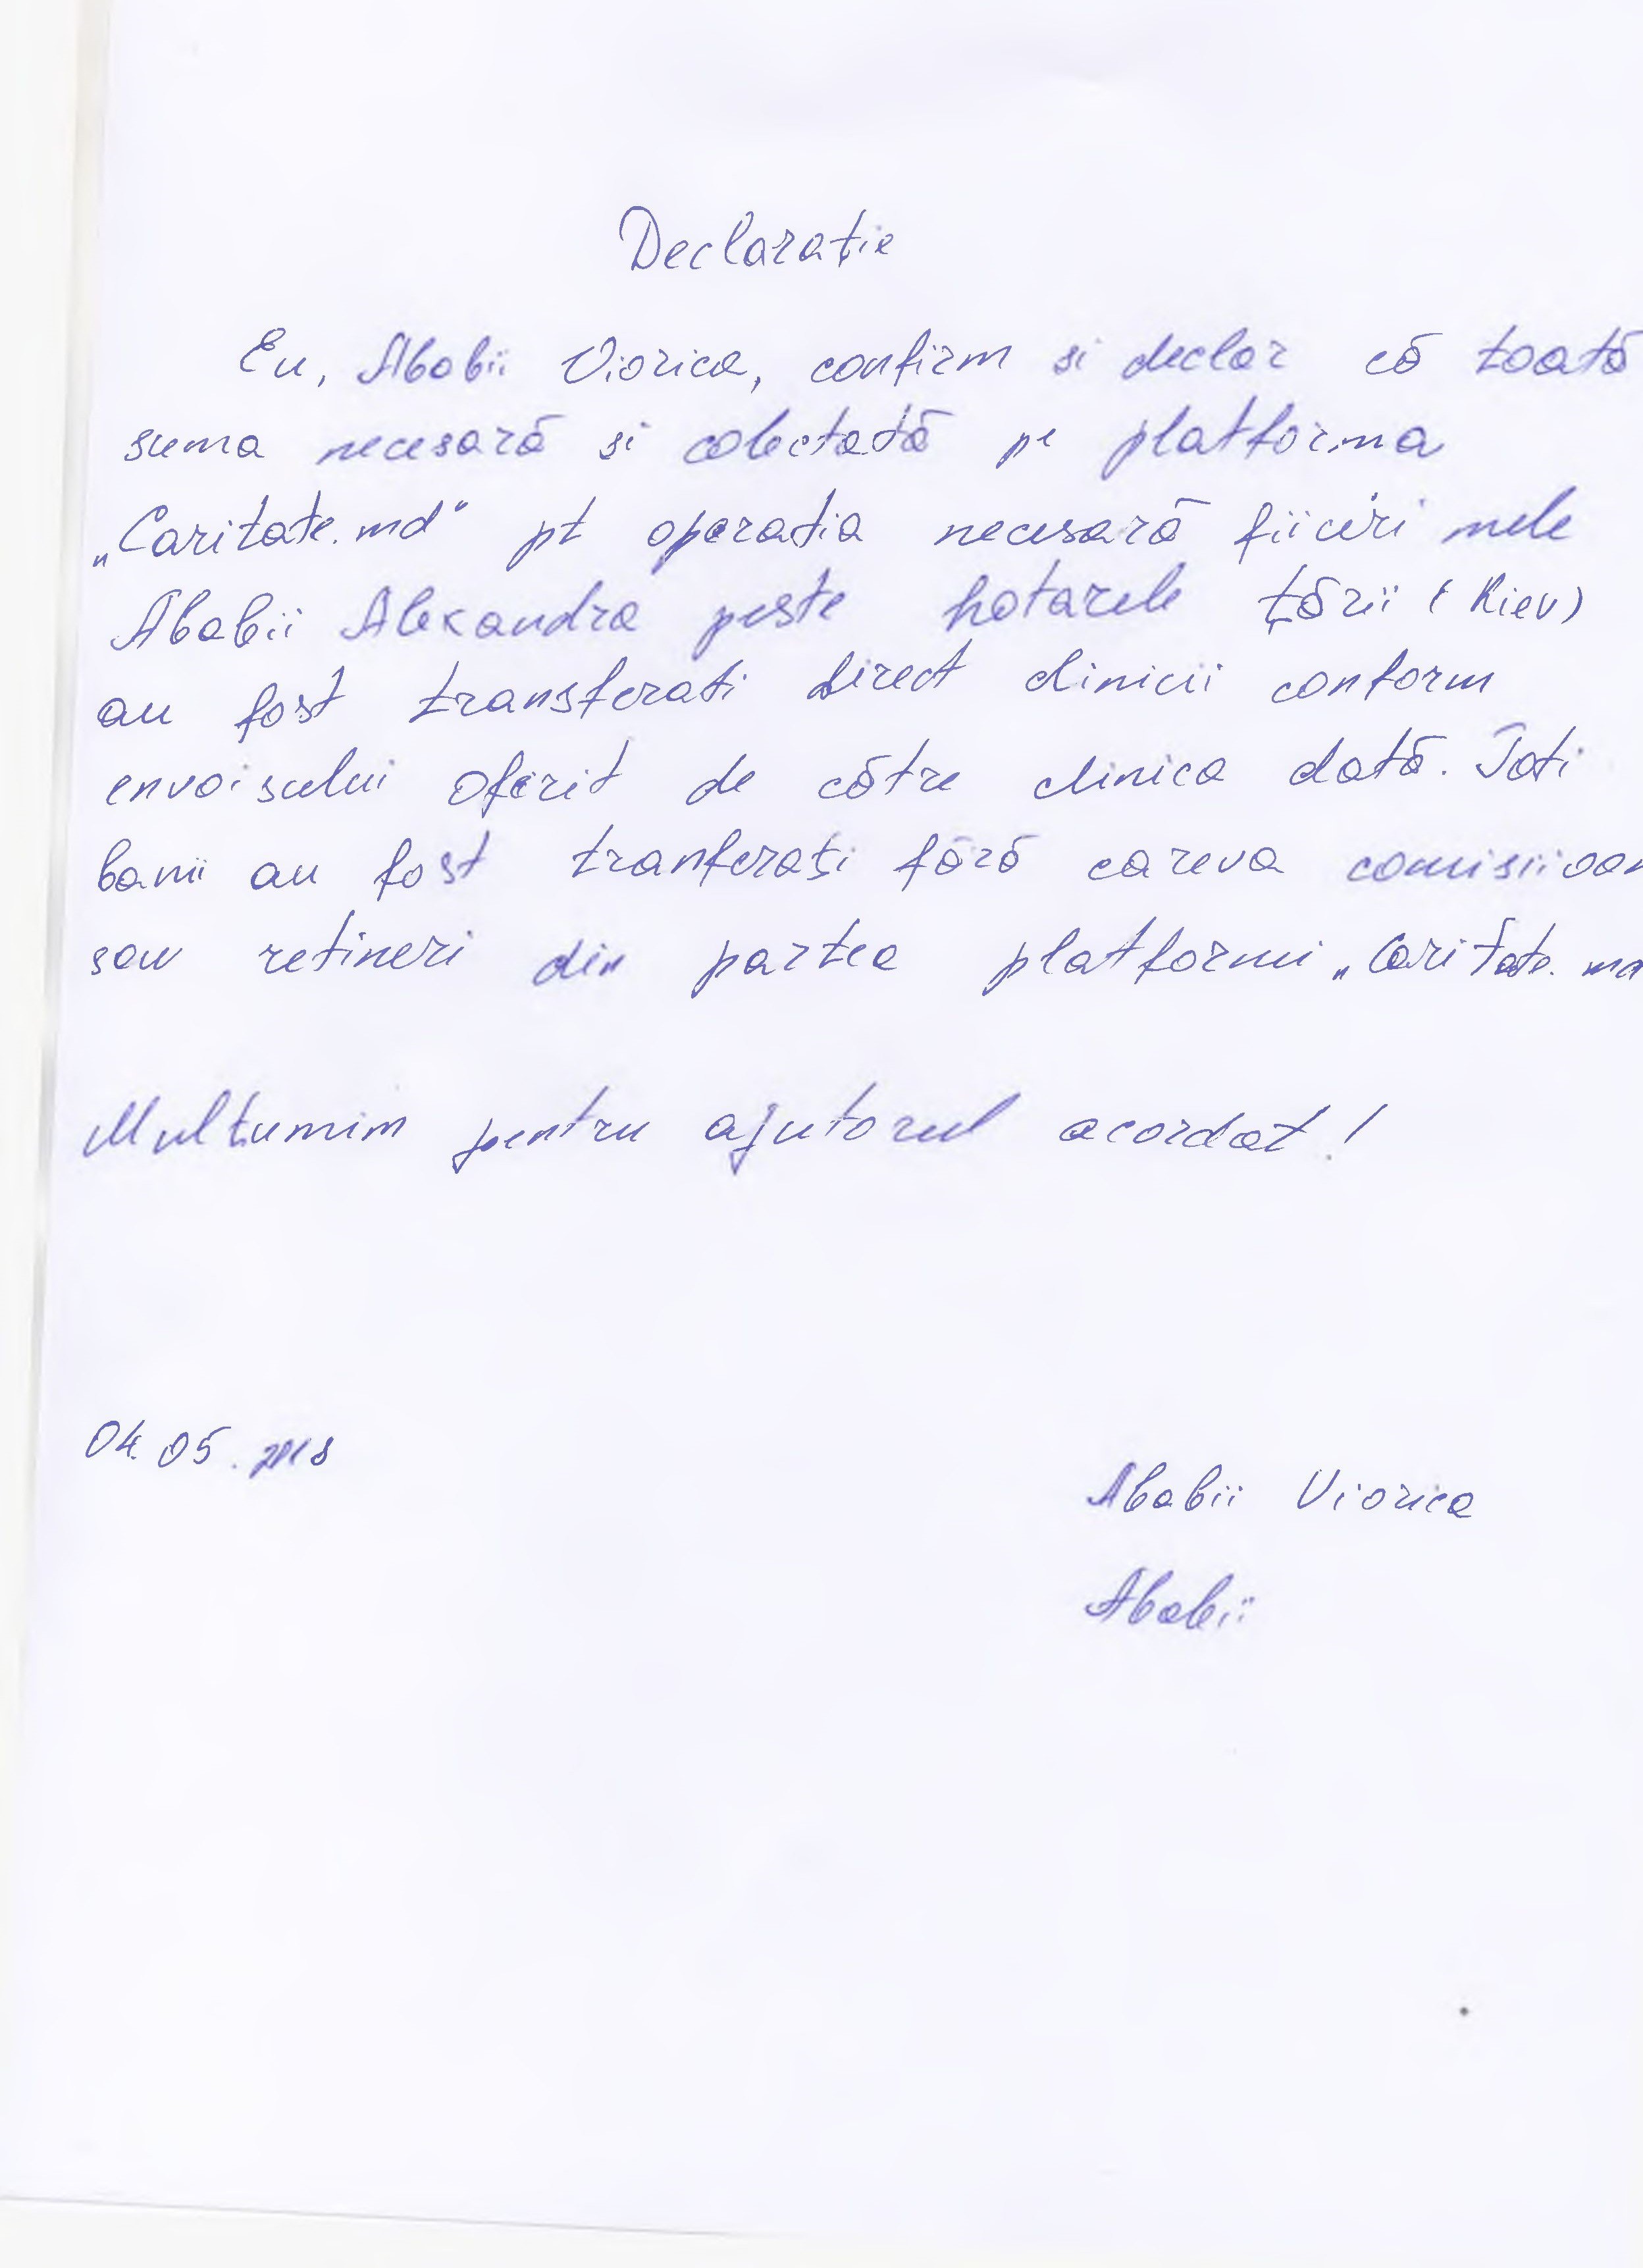 Declarație
Eu, Ababii Viorica, confirm si declar că toată
suma necesară si colectată pe platforma
„Caritate.md" pt operatia necesară fiicei mele
Ababii Alexandra peste hotarele țării (Kiev)
au fost transferati direct clinicii conform
envoisului oferit de către clinica dată. Toti
banii au fost tranferați fără careva comisiioan
sau retineri din partea platformii „Caritate.md
Multumim pentru ajutorul acordat!
04.05.2018
Ababii Viorica
Ababii